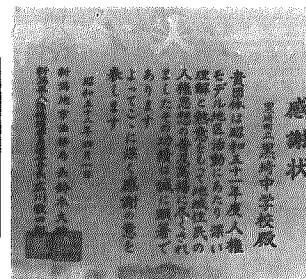 感謝状
黒埼中学校殿
貴団体は昭和五十一年度人権
モデル地区活動にあたり深い
理解と熱意をもって地域住民の
人権思想の普及高揚に尽くされ
ましたその功績は誠に顕著で
あります
よってここに深く感謝の意を
表します
昭和五十二年四月一日
新潟地方法務局長鈴木文